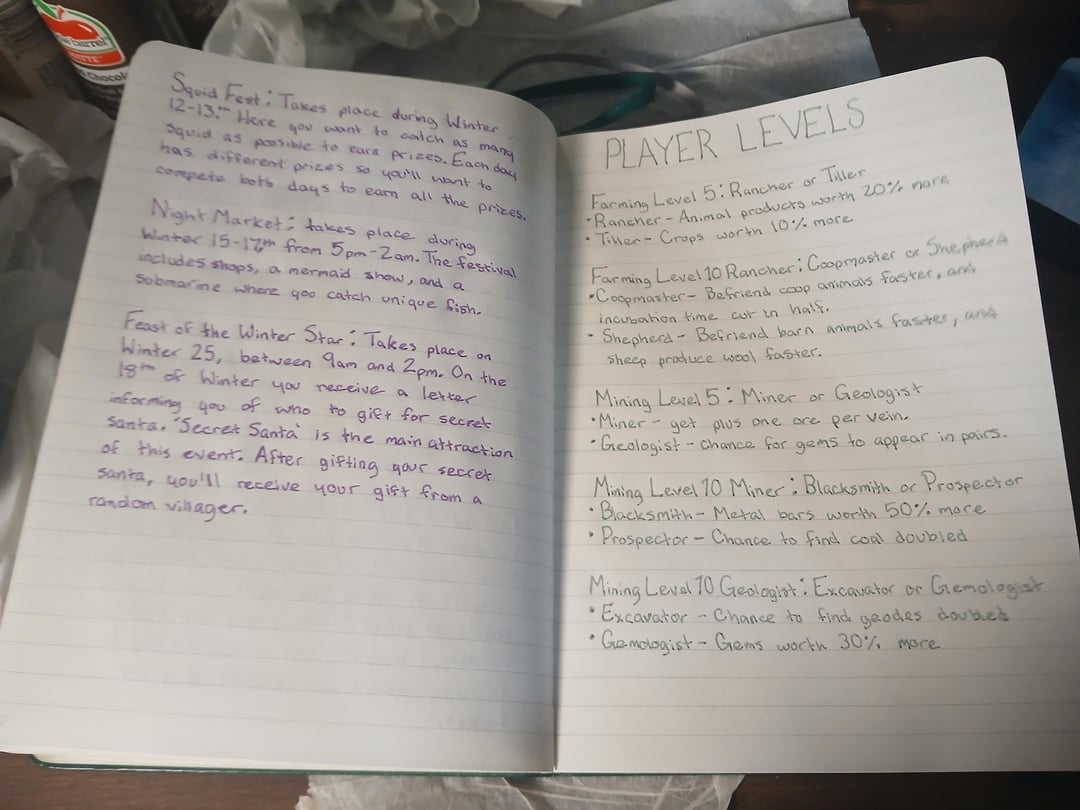 Squid Fest: Takes place during Winter
12-13.th Here you want to catch as many
squid as possible to earn prizes. Each day
has different prizes so you'll want to
compete both days to earn all the prizes.
Night Market: takes place during
Winter 15-17th from 5pm-2am. The festival
includes shops, a mermaid show, and a
submarine where you catch unique fish.
Feast of the Winter Star: Takes place on
Winter 25, between 9am and 2pm. On the
18th of Winter you receive a letter
informing you of who to gift for secret
santa. 'Secret Santa' is the main attraction
of this event. After gifting your secret
santa, you'll receive your gift from a
random villager.
PLAYER LEVELS
Farming Level 5: Rancher or Tiller
• Rancher - Animal products worth 20% more
• Tiller - Crops worth 10% more
Farming Level 10 Rancher: Coopmaster or Shepherd
• Coopmaster - Befriend coop animals faster, and
incubation time cut in half.
• Shepherd - Befriend barn animals faster, and
sheep produce wool faster.
Mining Level 5: Miner or Geologist
• Miner - get plus one ore per vein.
• Geologist - chance for gems to appear in pairs.
Mining Level 10 Miner: Blacksmith or Prospector
• Blacksmith - Metal bars worth 50% more
• Prospector - Chance to find coal doubled
Mining Level 10 Geologist: Excavator or Gemologist
• Excavator - Chance to find geodes doubled
• Gemologist - Gems worth 30% more